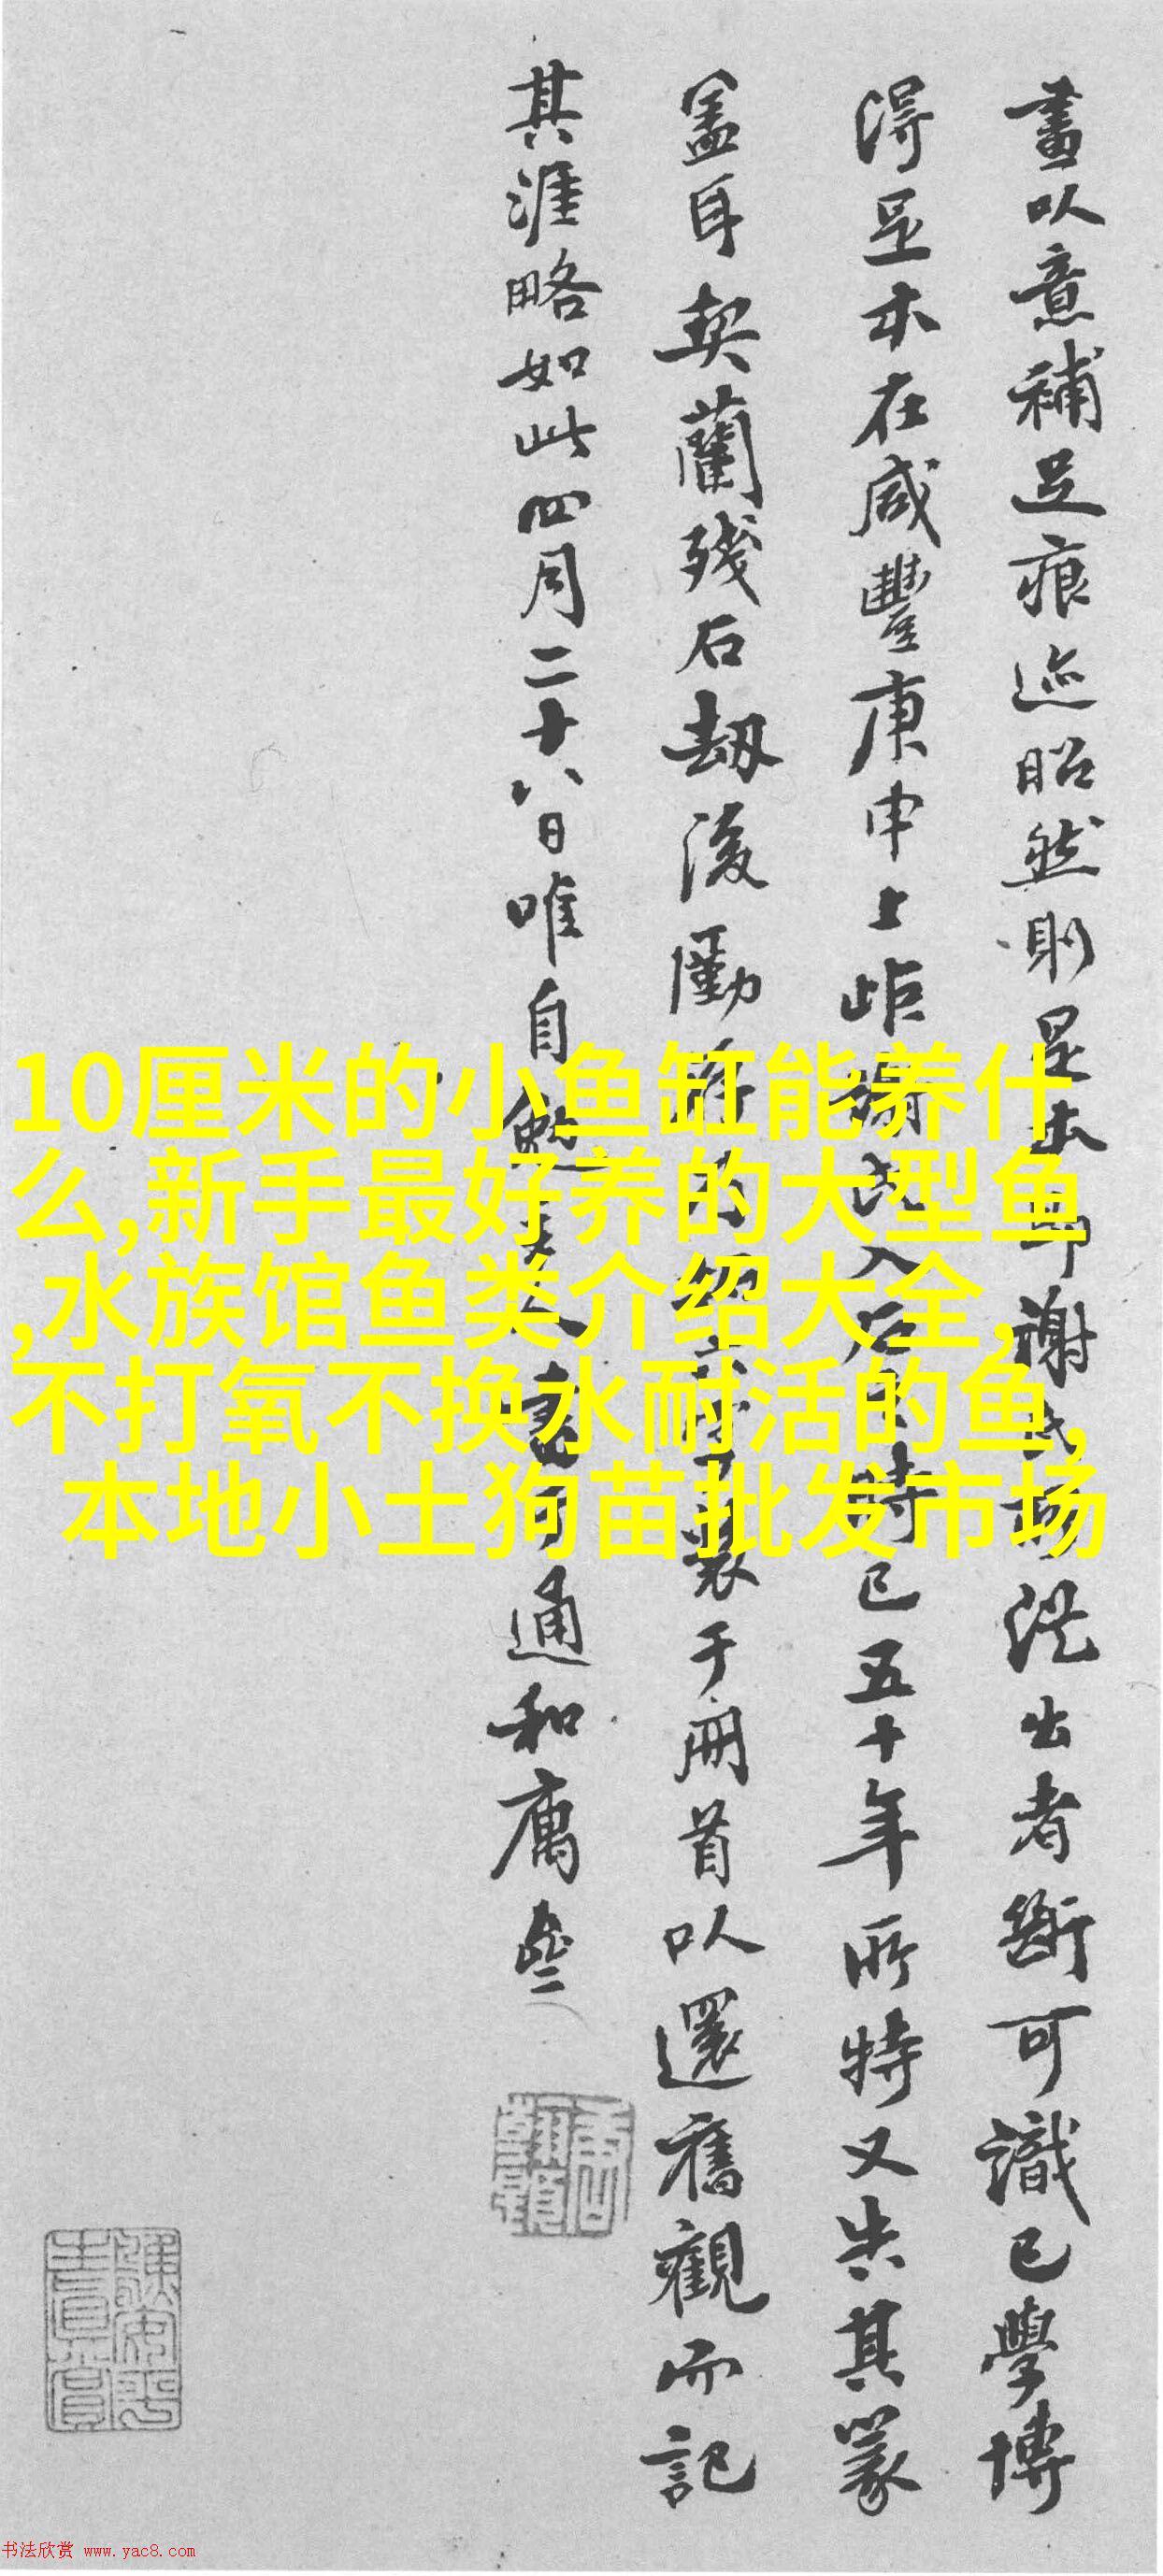 畫以意補足痕迹昭然則是本即謝氏所從出者斷可識已學博
得足本在咸豐庚申上岠謝氏入石時已五十年所特又失其篆
盖耳契蘭殘石劫後勵存
裝于冊首以還舊觀而記
其涯略如此四月二十八日唯自勉
通和庽
10厘米的小鱼缸能养什
么,新手最好养的大型鱼
,水族馆鱼类介绍大全,
不打氧不换水耐活的鱼,
本地小土狗苗批发市场
书法欣赏 www.yac8.com